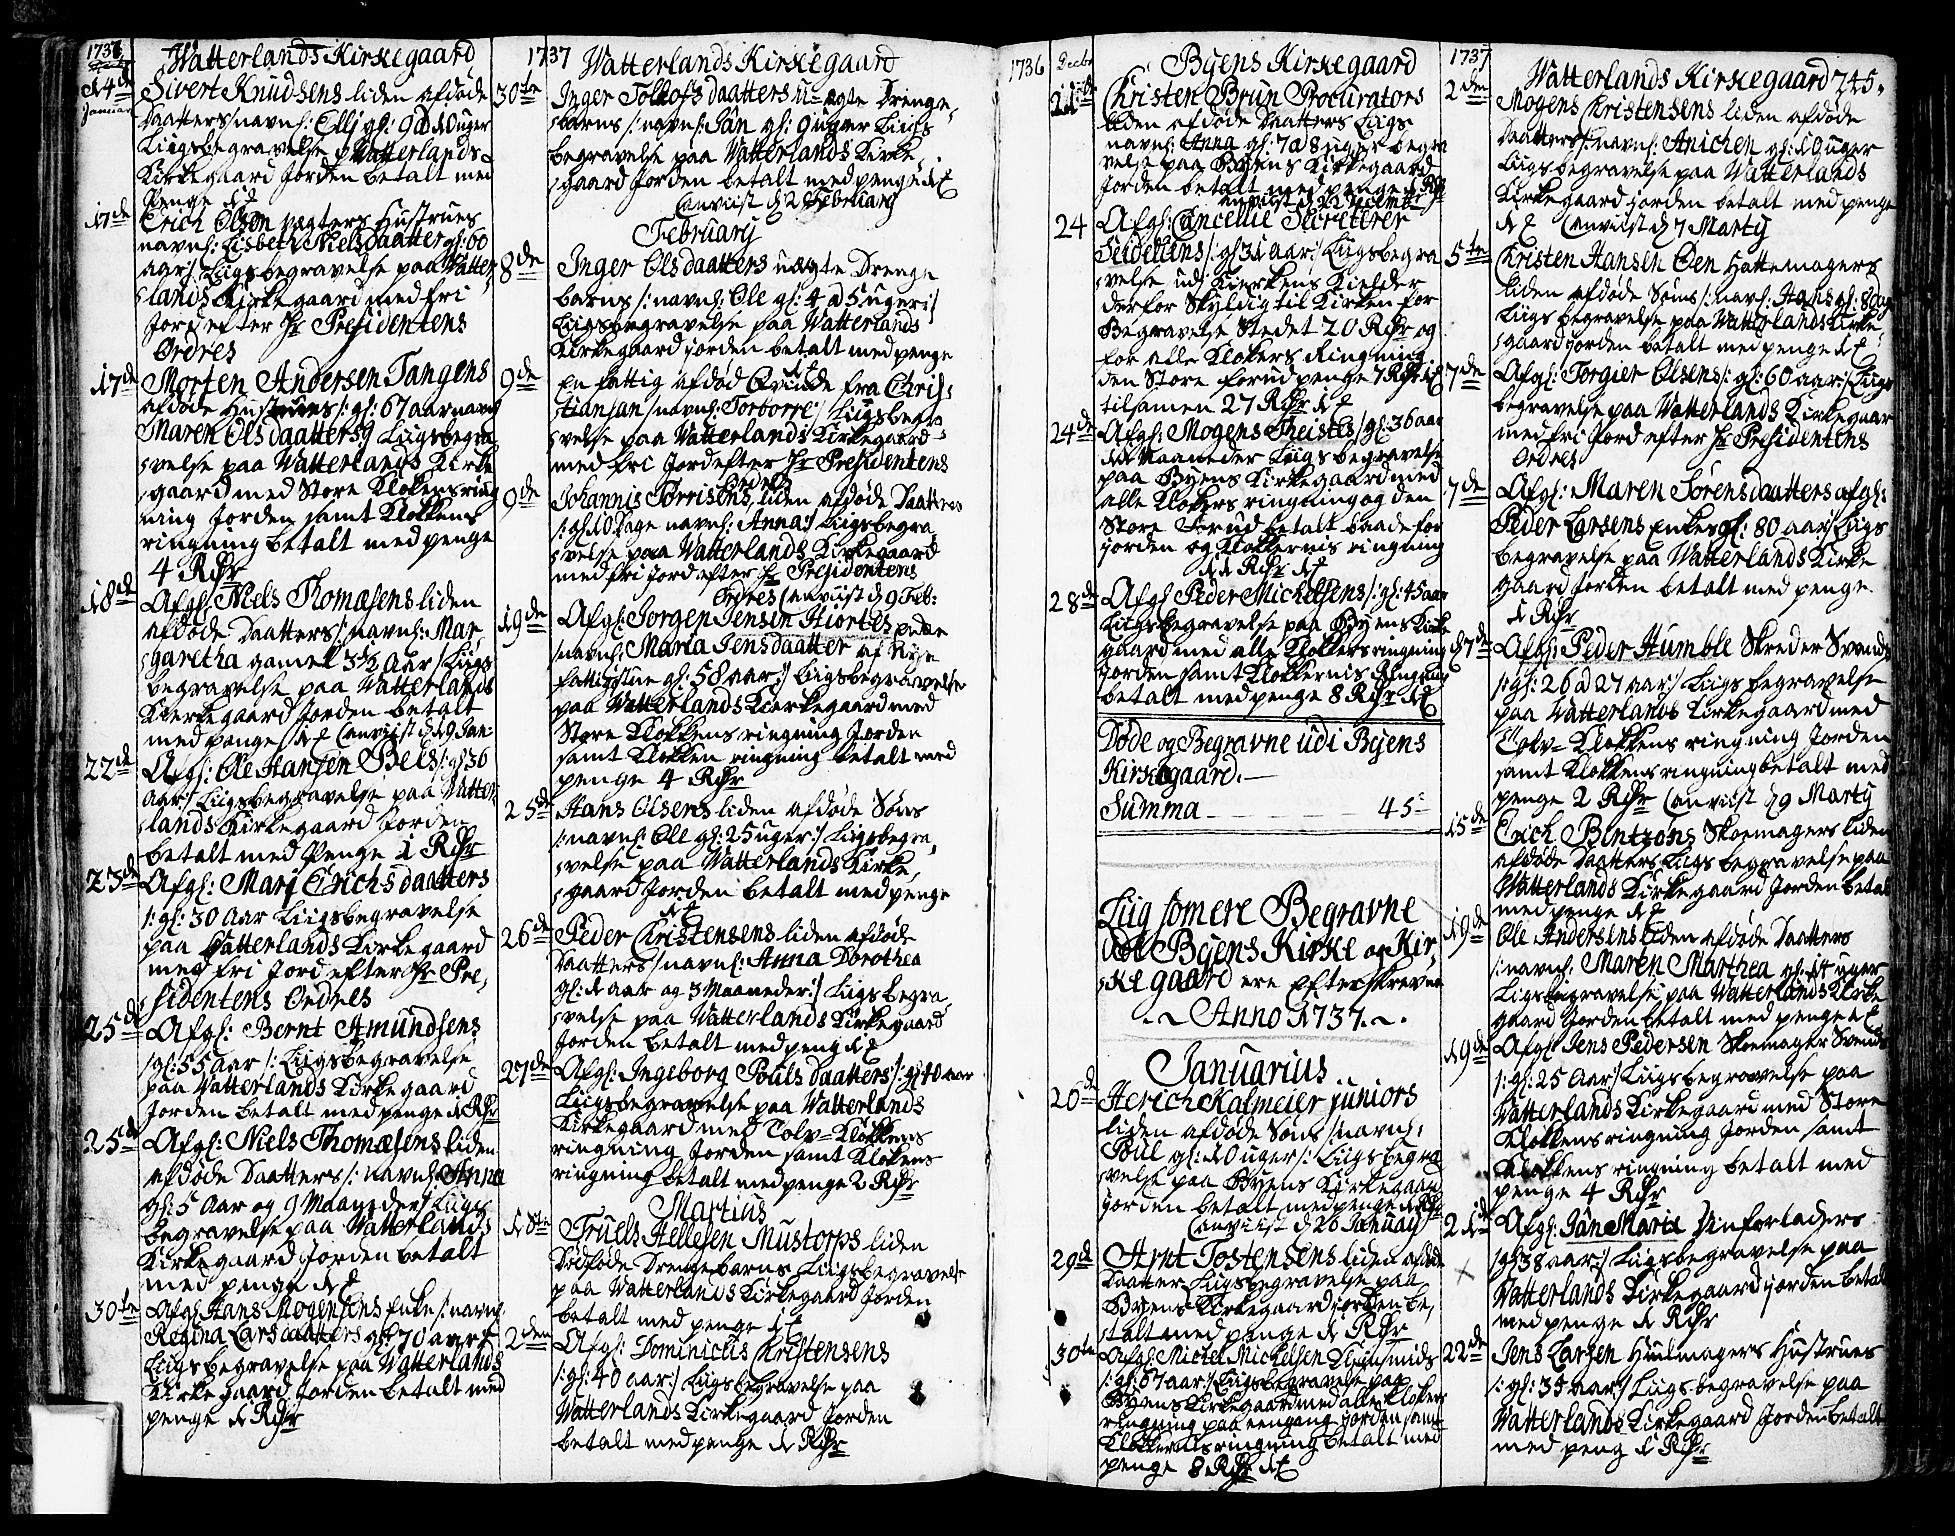 1737
Watterlands Kirkegaard
14de
Januar
Sivert Knudsens liden afdøde
Daatters navnl: Elli gl: 9 a 10 uger
Liigsbegravelse paa Watterlands
Kirkegaard Jorden betalt med
Penge
17de
Erich Olsen Hustrues
navnl: Lisbeth Nielsdaatter gl: 60
aar Liigsbegravelse paa Watter
lands Kirkegaard med fri
Jord efter Hr Presidentens
Ordres
17de
Morten Andersen Tangens
afdøde Hustrues /: gl: 67 aar navnl
Maren Olsdaatters Liigsbegra
velse paa Watterlands Kirke
gaard med Store Klokens ring
ning Jorden samt Klokkens
ringning betalt med penge
4 Rdr
18de
Afgl: Niels Thomæsens liden
afdøde Daatters /: navnl: Mar
garetha gamel 3½ Aar / Liigs
begravelse paa Watterlands
Kierkegaard Jorden betalt
med penge anviist d 19 Jan:
22de
Afgl: Ole Hansen Bels /: gl 36
Aar / Liigsbegravelse paa Watter
lands Kirkegaard Jorden
betalt med Penge 1 Rdr
23de
Afgl: Mari Erichsdaatters
/: gl: 30 Aar Liigsbegravelse
paa Watterlands Kirkegaard
med fri Jord efter Hr Pre
sidentens Ordres
25de
Afgl: Bernt Amundsens
/ gl: 55 Aar /: Liigsbegravelse
paa Watterlands Kirkegaard
Jorden betalt med penge 1 Rdr
25de
Afgl: Niels Thomæsens liden
afdøde Daatters /: navnl: Anna
gl: 5 Aar og 9 Maaneder / Liigs
begravelse paa Watterlands
Kirkegaard Jorden betalt
med penge
30te
Afgl Hans Mogensens Enke /: navnl
Regina Larsdaatters gl 70 aar
Liigsbegravelse paa Watterlands
Kirkegaard Jorden betalt med
penge 1 Rdr
1737
Watterlands Kirkegaard
30te
Inger Tollofsdaatters U=ægte Drenge
barns /: navnl: Jan gl: 9 uger Liigs
begravelse paa Watterlands Kirke
gaard Jorden betalt med penge
anviist d 2 February
February
8de
Inger Olsdaatters uægte Drenge
barns /: navnl: Ole gl: 4 a 5 uger :/
Liigsbegravelse paa Watterlands
Kirkegaard jorden betalt med penge
9de
En fattig afdød Qvinde fra Chris
tiansan /navnl: Torborre / Liigsbegra
velse paa Watterlands Kirkegaard
med fri Jord efter Hr Presidentens
Ordres
9de
Johannis Torrisens liden afdøde Daatters
/: gl: 10 Dage navnl: Anna :/ Liigsbegra
velse paa Watterlands Kirkegaard
med fri Jord efter Hr Presidentens
Ordres anviist d 9 Feb:
19de
Afgl: Jorgen Jensen Hiortes Enke
/navnl: Maria Jensdaatter af Nye
fattigstue gl: 58 aar :/ Liigsbegravelse
paa Watterlands Kierkegaard med
Store Klokkens ringning Jorden
samt Klokken ringning betalt med
penge 4 Rdr
25de
Hans Olsens liden afdøde Søns
/: navnl: Ole gl: 25 uger :/ Liigsbegra
velse paa Watterlands Kirke
gaard Jorden betalt med penge
26de
Peder Christensens liden afdøde
Daatters /navnl: Anna Dorothea
gl: 1 aar og 3 Maaneder :/ Liigsbegra
velse paa Watterlands Kirkegaard
Jorden betalt med peng
27de
Afgl: Ingeborg Poulsdaatters /: gl 40 aar
Liigsbegravelse paa Watterlands
Kirkegaard med Tolv=Klokkens
ringning Jorden samt Klokens
ringning betalt med penge 2 Rdr
Martius
18te
Truels Hellesen Mustorps liden
Dødføde Drengebarns Liigsbegravelse
paa Watterlands Kirkegaard Jorden
betalt med penge
2den
Afgl: Dominicus Christensens
/: gl: 40 aar :/ Liigsbegravelse paa
Watterlands Kirkegaard Jorden
betalt med penge 1 Rdr
1736
Decbr
Byens Kirkegaard
Christen Brun Procurators
liden afdøde Daatters Liigs
navnl: Anna gl: 7 a 8 uger begra
velse paa Byens Kirkegaard
Jorden betalt med penge 1 Rdr
anviist d 22 Decembr
24
Afgl: Cancellie Secreterer
Seideliens /: gl 31 aar :/ Liigsbegra
velse udi Kierkens Kielder
derfor Skyldig til Kirken for
Begravelse Stedet 20 Rdr og
for alle Klokers Ringning
den Store forud penge 7 Rdr
tilsamen 27 Rdr
24de
Afgl: Mogens Theistes / gl: 36 aar
Maaneder Liigsbegravelse
paa Byens Kirkegaard med
alle Klokers ringning og den
Store Forud betalt baade for
jorden og Klokkernis ringning
11 Rdr
28de
Afgl Peder Michelsens /: gl: 45 aar
Liigsbegravelse paa Byens Kirke
gaard med alle Klokkers ringning
Jorden samt Klokkernis Ringning
betalt med penge 8 Rdr
Døde og Begravne udi Byens
Kirkegaard.
Summa 45
Liig somere Begravne
Byens Kirke og Kir
kegaard ere Efterskrevne
Anno 1737.
Januarius
26de
Herich Kalmeier juniors
liden afdøde Søns /: navnl:
Poul gl: 10 uger /: Liigsbegra
velse paa Byens Kirkegaard
jorden betalt med penge 1 Rdr
anviist d 26 January
29de
Arnt Tostensens liden afdøde
Daatter Liigsbegravelse paa
Byens Kirkegaard jorden be
talt med penge 1 Rdr
30te
Afgl: Michel Michelsen
/: gl: 67 aar :/ Liigsbegravelse paa
Byens Kirkegaard med alle Klokers
ringning paa eengang Jorden samt
Klokkernis ringning betalt med
penge 8 Rdr
1737
Watterlands Kirkegaard 745.
2den
Mogens Christensens liden afdøde
Daatters /: navnl: Anichen gl: 10 uger
Liigsbegravelse paa Watterlands
Kirkegaard jorden betalt med penge
anviist d 7 Marty
5te
Christen Hansen Øen Hattemagers
liden afdøde Søns /: navnl: Hans gl: 8 dag
Liigsbegravelse paa Watterlands Kirke
gaard Jorden betalt med penge
7de
Afgl: Torgier Olsens /: gl: 60 aar :/ Liigs
begravelse paa Watterlands Kirkegaar
med fri Jord efter Hr Presidentens
Ordres
7de
Afgl: Maren Sørensdaatters afgl:
Peder Larsens Enkes gl: 80 aar / Liigs
begravelse paa Watterlands Kirke
gaard Jorden betalt med penge
1 Rdr
7de
Afgl: Peder Humble Skreder Svends
/: gl: 26 a 27 aar :/ Liigsbegravelse
paa Watterlands Kirkegaard med
Tolv=Klokkens ringning Jorden
samt Klokkens ringning betalt med
penge 2 Rdr anviist d 9 Marty
15de
Erich Bentzons Skoemagers liden
afdøde Daatters Liigsbegravelse paa
Watterlands Kirkegaard Jorden betal
med penge
19de
Ole Andersens liden afdøde Daatters
/: navnl: Maren Marthea gl: 14 uger
Liigsbegravelse paa Watterlands Kirke
gaard Jorden betalt med penge
19de
Afgl Jens Pedersen Skoemager Svends
/: gl: 25 Aar :/ Liigsbegravelse paa
Watterlands Kirkegaard med Store
Klokkens ringning Jorden samt
Klokkens ringning betalt med
penge 4 Rdr
21de
Afgl: Jane Maria
/ gl 38 aar :/ Liigsbegravelse paa
Watterlands Kirkegaard jorden betal
med penge 1 Rdr
22de
Jens Larsen Huulmagers Hustrues
/: gl: 35 aar :/ Liigsbegravelse paa
Watterlands Kirkegaard Jorden betalt
med peng 1 Rdr